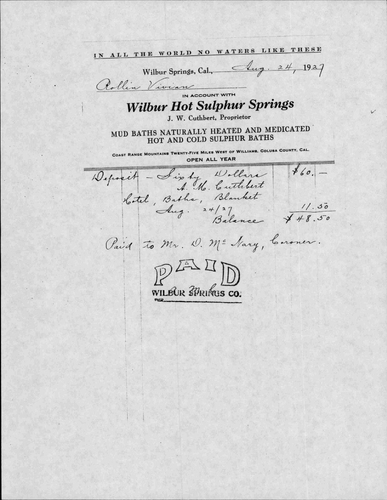 IN ALL THE WORLD NO WATERS LIKE THESE
Wilbur Springs, Cal., Aug. 24, 1927
Rollin Vivian
IN ACCOUNT WITH
Wilbur Hot Sulphur Springs
J. W. Cuthbert, Proprietor
MUD BATHS NATURALLY HEATED AND MEDICATED
HOT AND COLD SULPHUR BATHS
COAST RANGE MOUNTAINS TWENTY-FIVE MILES WEST OF WILLIAMS, COLUSA COUNTY, CAL.
OPEN ALL YEAR
Deposit - Sixty Dollars $60.—
A. M. Cuthbert
Hotel, Baths, Blanket
Aug. 24/27 11.50
Balance $48.50
Paid to Mr. D. McNary, Coroner.
PAID
WILBUR SPRINGS CO.